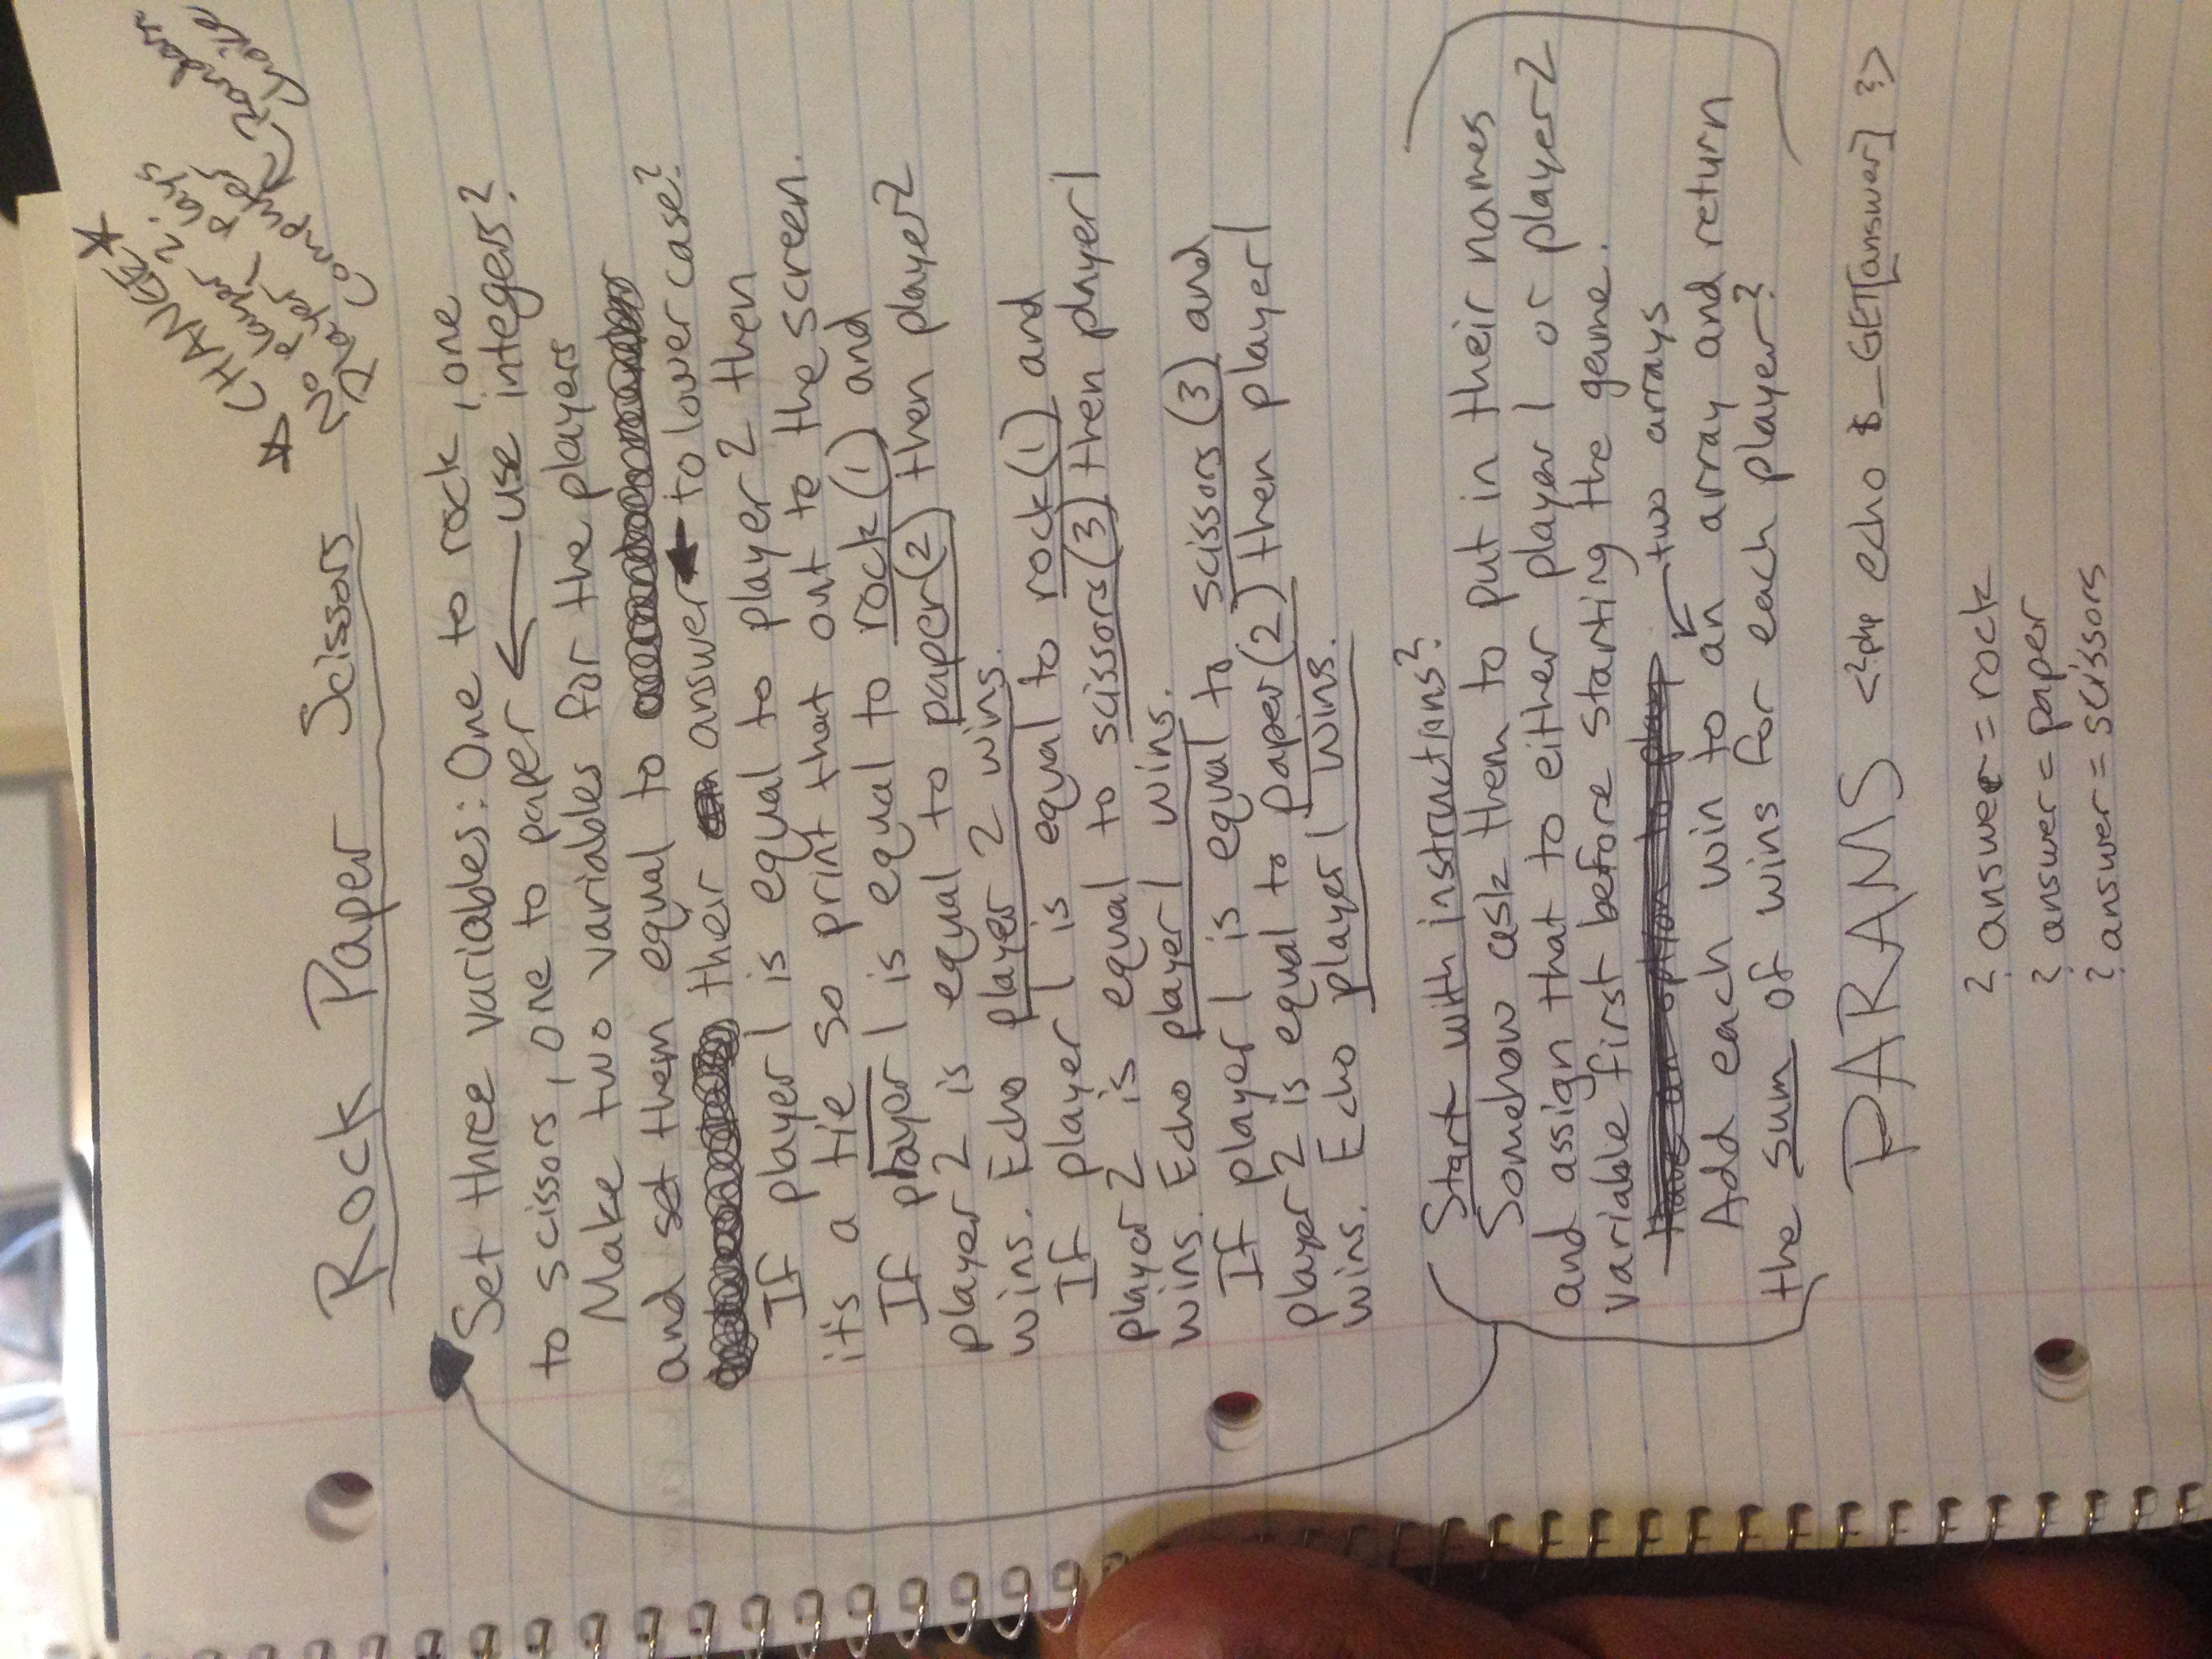 ☆ CHANGE ☆
No player 2.
Player 1 plays
computer
Random
choice
Rock Paper Scissors
Set three variables: One to rock, one
to scissors, one to paper ← use integers?
Make two variables for the players
and set them equal to
their answer ← to lower case?
If player 1 is equal to player 2 then
it's a tie so print that out to the screen.
If player 1 is equal to rock (1) and
player 2 is equal to paper (2) then player 2
wins. Echo player 2 wins.
If player 1 is equal to rock (1) and
player 2 is equal to scissors (3) then player 1
wins. Echo player 1 wins.
If player 1 is equal to scissors (3) and
player 2 is equal to paper (2) then player 1
wins. Echo player 1 wins.
Start with instructions?
Somehow ask them to put in their names
and assign that to either player 1 or player 2
variable first before starting the game.
Have an option to play
two arrays
Add each win to an array and return
the sum of wins for each player?
PARAMS <?php echo $_GET[answer] ?>
? answer = rock
? answer = paper
? answer = scissors